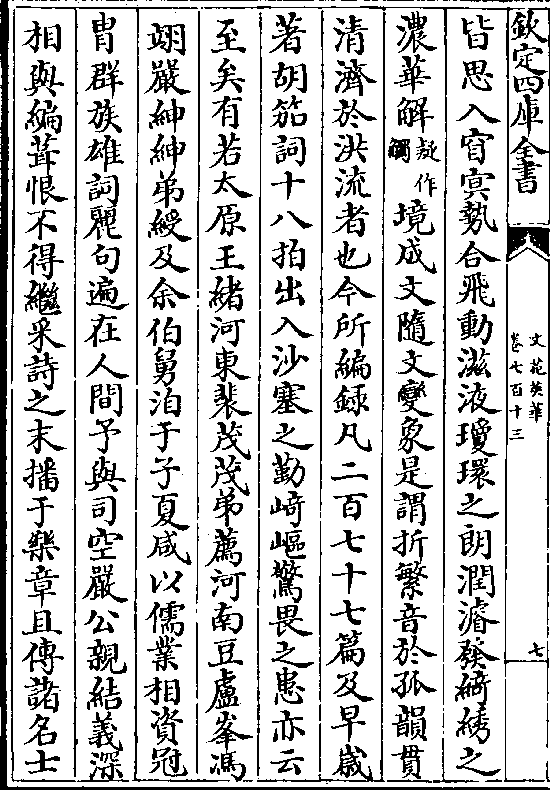 欽定四庫全書
文苑英華
卷七百十三
七
皆思入窅冥勢合飛動滋液瓊瓌之朗潤濬發綺繡之
濃華解疑作觸境成文隨文變象是謂折繁音於孤韻貫
清濟於洪流者也今所編録凡二百七十七篇及早歲
著胡笳詞十八拍出入沙塞之勤﨑嶇驚畏之患亦云
至矣有若太原王緒河東裴茂茂弟薦河南豆盧峯馮
翊嚴紳紳弟綬及余伯舅洎于子夏咸以儒業相資冠
胄群族雄詞麗句遍在人間予與司空嚴公親結義深
相與編葺恨不得繼采詩之末播于樂章且傳諸名士